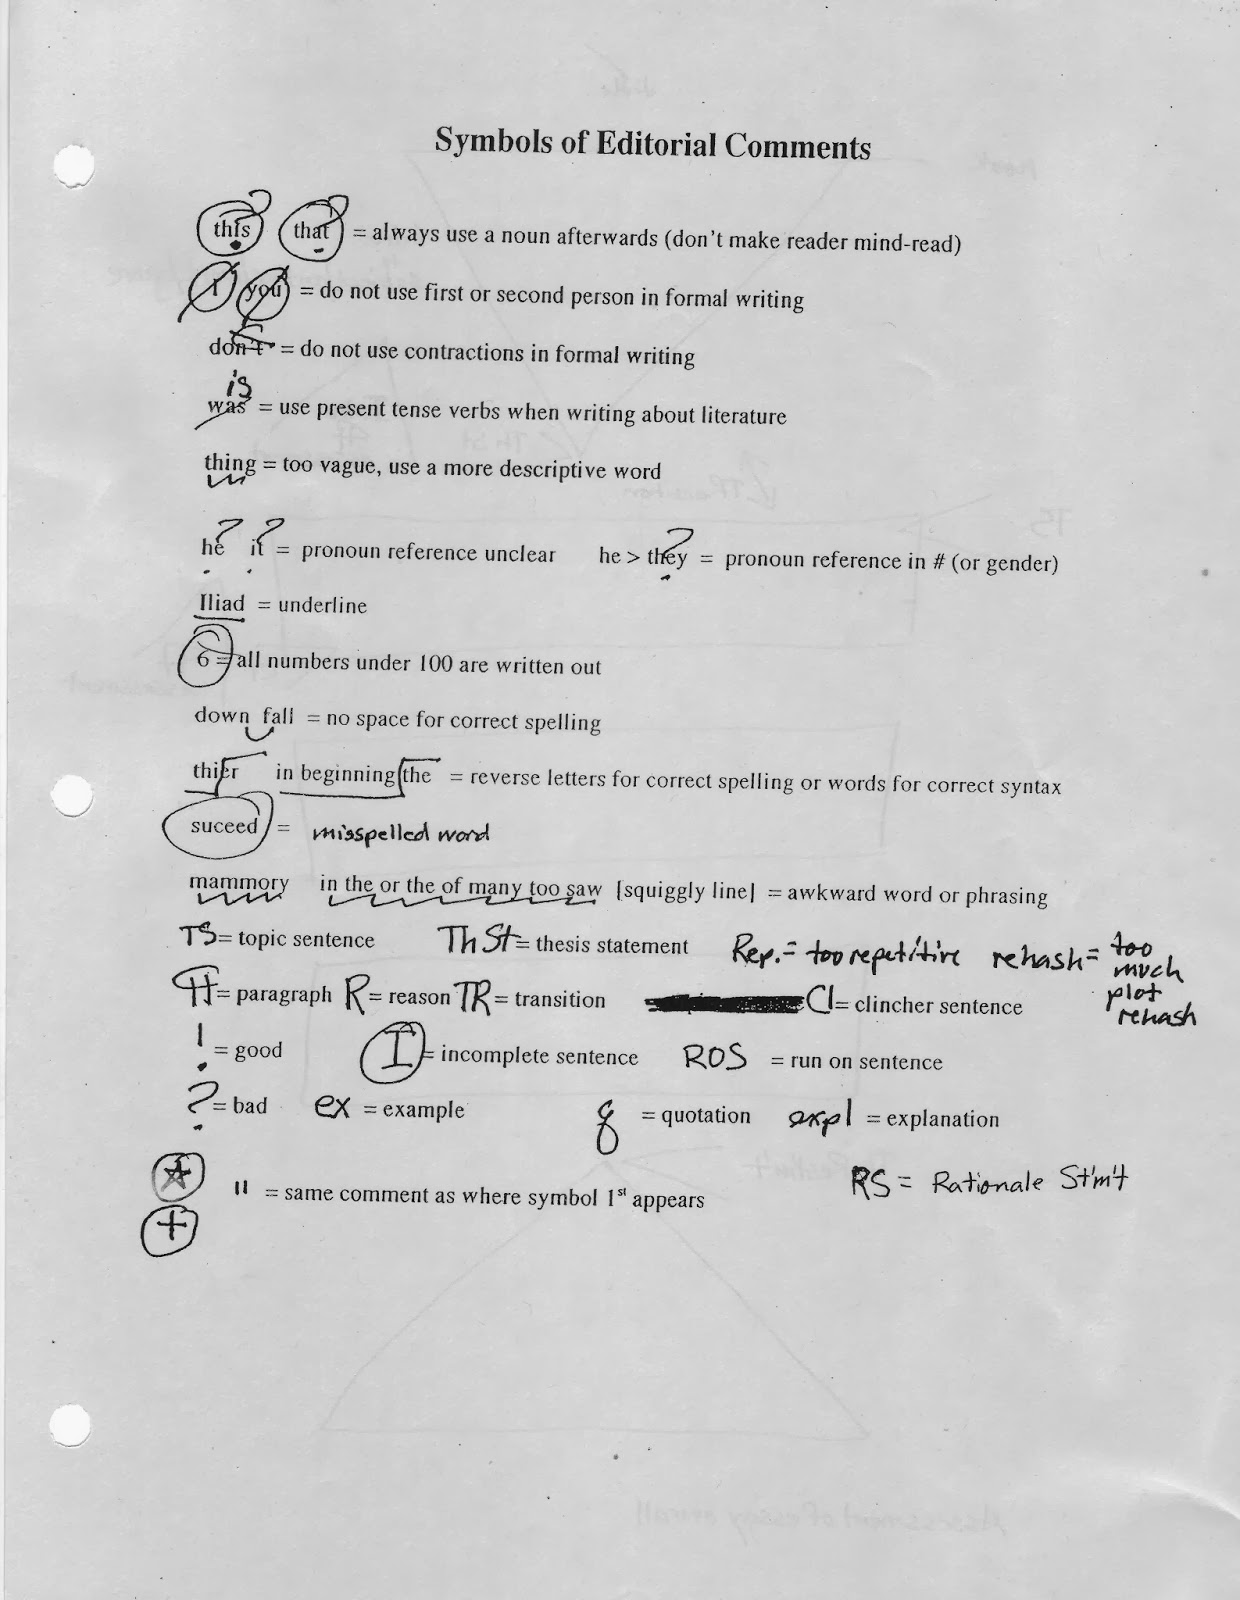 Symbols of Editorial Comments
this? that? = always use a noun afterwards (don't make reader mind-read)
I you = do not use first or second person in formal writing
don't = do not use contractions in formal writing
is
was = use present tense verbs when writing about literature
thing = too vague, use a more descriptive word
he? it? = pronoun reference unclear he > they? = pronoun reference in # (or gender)
Iliad = underline
6 = all numbers under 100 are written out
down fall = no space for correct spelling
thier in beginning the = reverse letters for correct spelling or words for correct syntax
suceed = misspelled word
mammory in the or the of many too saw [squiggly line] = awkward word or phrasing
TS = topic sentence Th St = thesis statement Rep. = too repetitive rehash = too much plot rehash
¶ = paragraph R = reason TR = transition Cl = clincher sentence
! = good I = incomplete sentence ROS = run on sentence
? = bad ex = example q = quotation expl = explanation
RS = Rationale St'm't
" = same comment as where symbol 1st appears
+